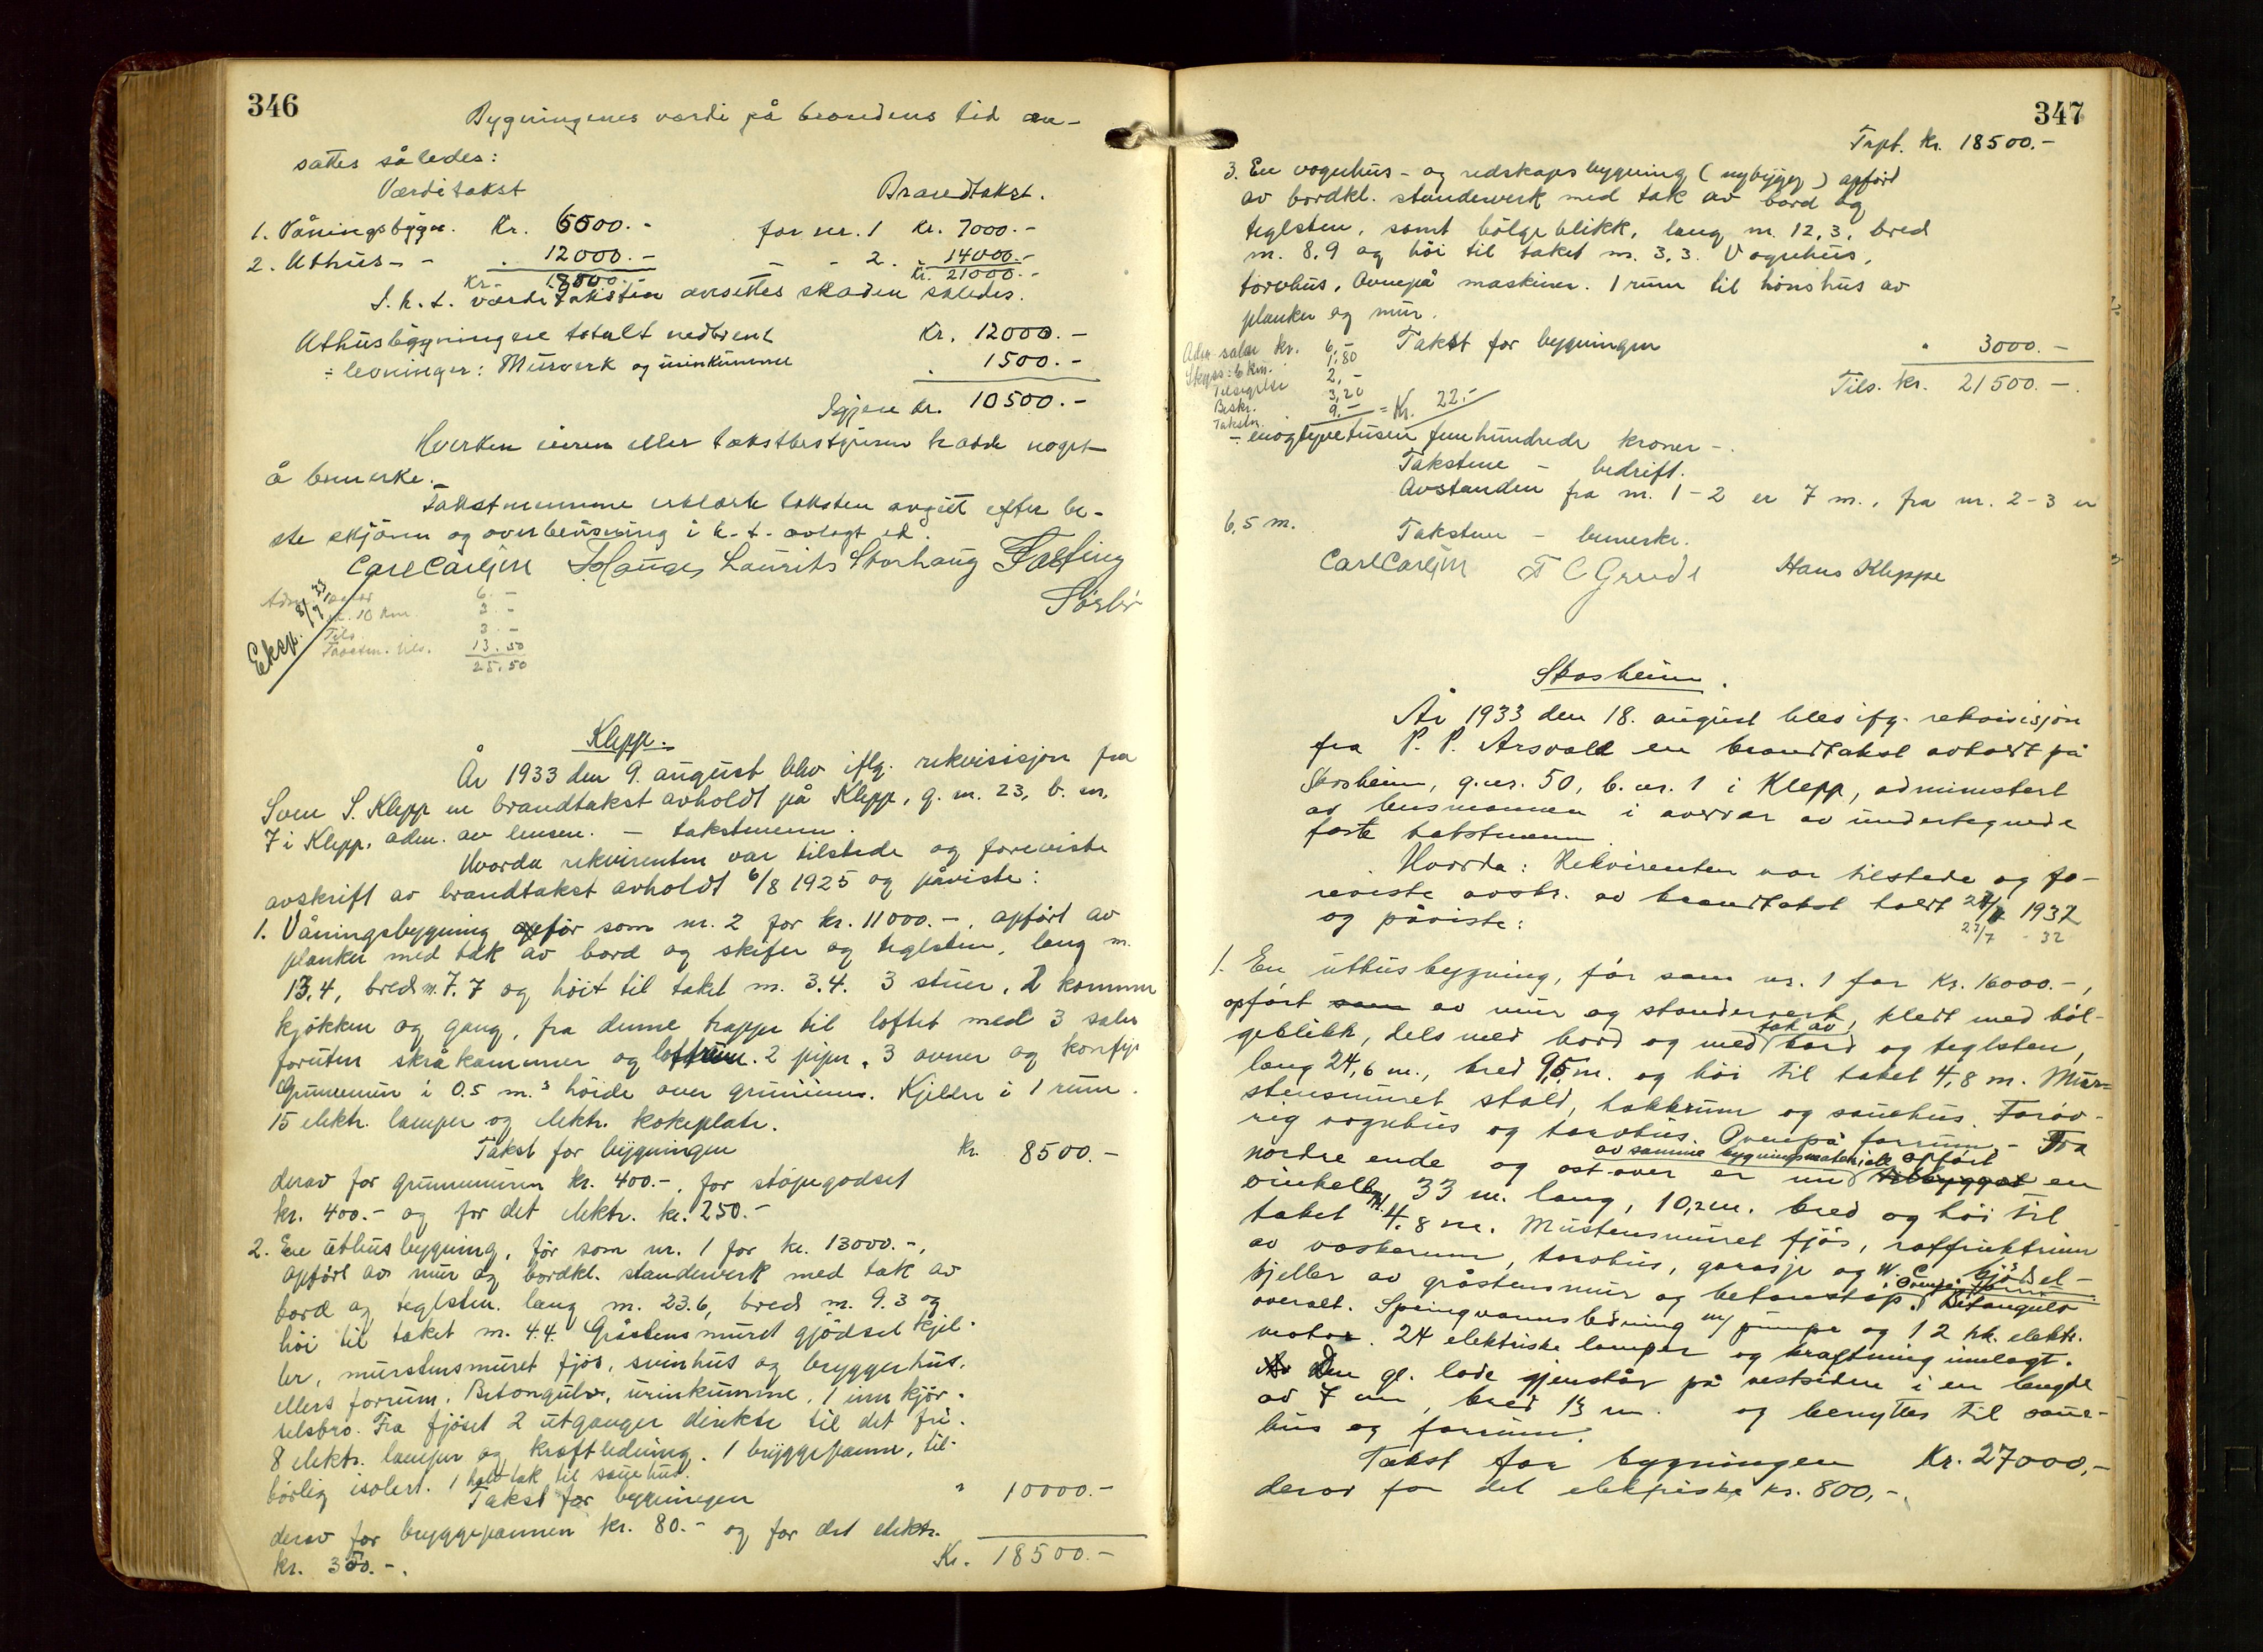 346
Bygningenes værdi på brandens tid an-
sattes således:
Værditakst Brandtakst.
1. Våningsbygn. Kr. 6500.- for nr. 1 Kr. 7000.-
2. Uthus- - . 12000.- - - 2. . 14000.-
Kr. 18500.- Kr. 21000.-
I h. t. værditaksten ansettes skaden således.
Uthusbygningen totalt nedbrent Kr. 12000.-
÷ levninger: Murverk og urinkumme . 1500.-
Igjen kr. 10500.-
Hverken eieren eller takstbestyreren hadde noget
å bemerke.
Takstmennene erklærte taksten avgitt efter be-
ste skjønn og overbevisning i h. t. avlagt ed.
Carl Carlsen Hauge Laurits Storhaug Fasting
Sørbø
Adm. salær 6.-
sk. 10 km 3.-
Tils. 3.-
Takstm. tils. 13.50
25.50
Eksp. 8/9 33
Klepp.
År 1933 den 9. august blev iflg. rekvisisjon fra
Sven S. Klepp en brandtakst avholdt på Klepp, g. nr. 23, b. nr.
7 i Klepp, adm. av lensm. - takstmenn.
Hvorda rekvirenten var tilstede og foreviste
avskrift av brandtakst avholdt 6/8 1925 og påviste:
1. Våningsbygning før som nr. 2 for kr. 11000.-, opført av
planker med tak av bord og skifer og teglsten, lang m.
13,4, bred m. 7.7 og høit til taket m. 3.4. 3 stuer, 2 kammer
kjøkken og gang, fra denne trappe til loftet med 3 saler
foruten skråkammer og loftrum. 2 piper, 3 ovner og komfyr
Grunnmur i 0.5 m.s høide over grunnen. Kjelder i 1 rum.
15 elektr. lamper og elektr. kokeplate.
Takst for bygningen Kr. 8500.-
derav for grunnmuren kr. 400.-, for støpegodset
kr. 400.- og for det elektr. kr. 250.-
2. En uthusbygning, før som nr. 1 for kr. 13000.-,
opført av mur og bordkl. standerverk med tak av
bord og teglsten. lang m. 23.6, bred m. 9.3 og
høi til taket m. 4.4. Gråstensmuret gjødselkjel-
ler, murstensmuret fjøs, svinhus og bryggerhus,
ellers forrum. Betongulv, urinkumme, 1 innkjør-
selsbro. Fra fjøset 2 utganger direkte til det fri.
8 elektr. lamper og kraftledning. 1 bryggepanne, til-
børlig isolert. 1 halvtak til sauehus.
Takst for bygningen " 10000.-
derav for bryggepannen kr. 80.- og for det elektr.
kr. 350.-. Kr. 18500.-
347
Trpt. kr. 18500.-
3. En vognhus- og redskapsbygning (nybygg) opført
av bordkl. standerverk med tak av bord og
teglsten, samt bølgeblikk, lang m. 12,3, bred
m. 8,9 og høi til taket m. 3,3. Vognhus,
torvhus, ovenpå maskiner. 1 rum til hønshus av
planker og mur.
Takst for bygningen " 3000.-
Tils. kr. 21500.-.
Adm. salær kr. 6,-
Skyss: 6 km. 1,80
Tilsigelse 2,-
Beskr. 3,20
Takstm. 9,- = Kr. 22.-
- enogtyvetusen femhundrede kroner -.
Takstene - bedrift.
Avstanden fra nr. 1-2 er 7 m., fra nr. 2-3 er
6,5 m.
Taksten - bemerke.
Carl Carlsen T C Grude Hans Kleppe
Skasheim.
År 1933 den 18. august blev ifg. rekvisisjon
fra P. P. Arsvold en brandtakst avholdt på
Skasheim, g.nr. 50, b.nr. 1 i Klepp, administert
av lensmannen i nærvær av undertegnede
faste takstmenn
Hvorda: Rekvirenten var tilstede og fo-
reviste avskr. av brandtakst holdt 27/7 1932
27/7 - 32
og påviste:
1. En uthusbygning, før som nr. 1 for Kr. 16000.-,
opført som av mur og standerverk, kledt med bøl-
geblikk, dels med bord og med tak av bord og teglsten,
lang 24,6 m., bred 9,5 m. og høi til taket 4,8 m. Mur-
stensmuret stald, hakkrum og sauehus. Forøv-
rig vognhus og torvhus. Ovenpå forrum - Fra
nordre ende og ost-over er nu tilbygget av samme bygningsmateriale opført en
vinkelbygn. 33 m. lang, 10,2 m. bred og høi til
taket 4,8 m. Murstensmuret fjøs, rotfruktrum
av vaskerum, torvhus, garasje og W.C. kjødsel-
kjeller av gråstensmur og betongstøp. Ovenpå forrum. Betongulv
overalt. Springvannsledning m/ pumpe og 1 2 hk. elektr.
motor. 24 elektriske lamper og kraftning innlagt.
Den gl. lade gjenstår på vestsiden i en lengde
av 7 m, bred 13 m. og benyttes til saue-
hus og forrum.
Takst for bygningen Kr. 27000,-
derav for det elektriske kr. 800,-.